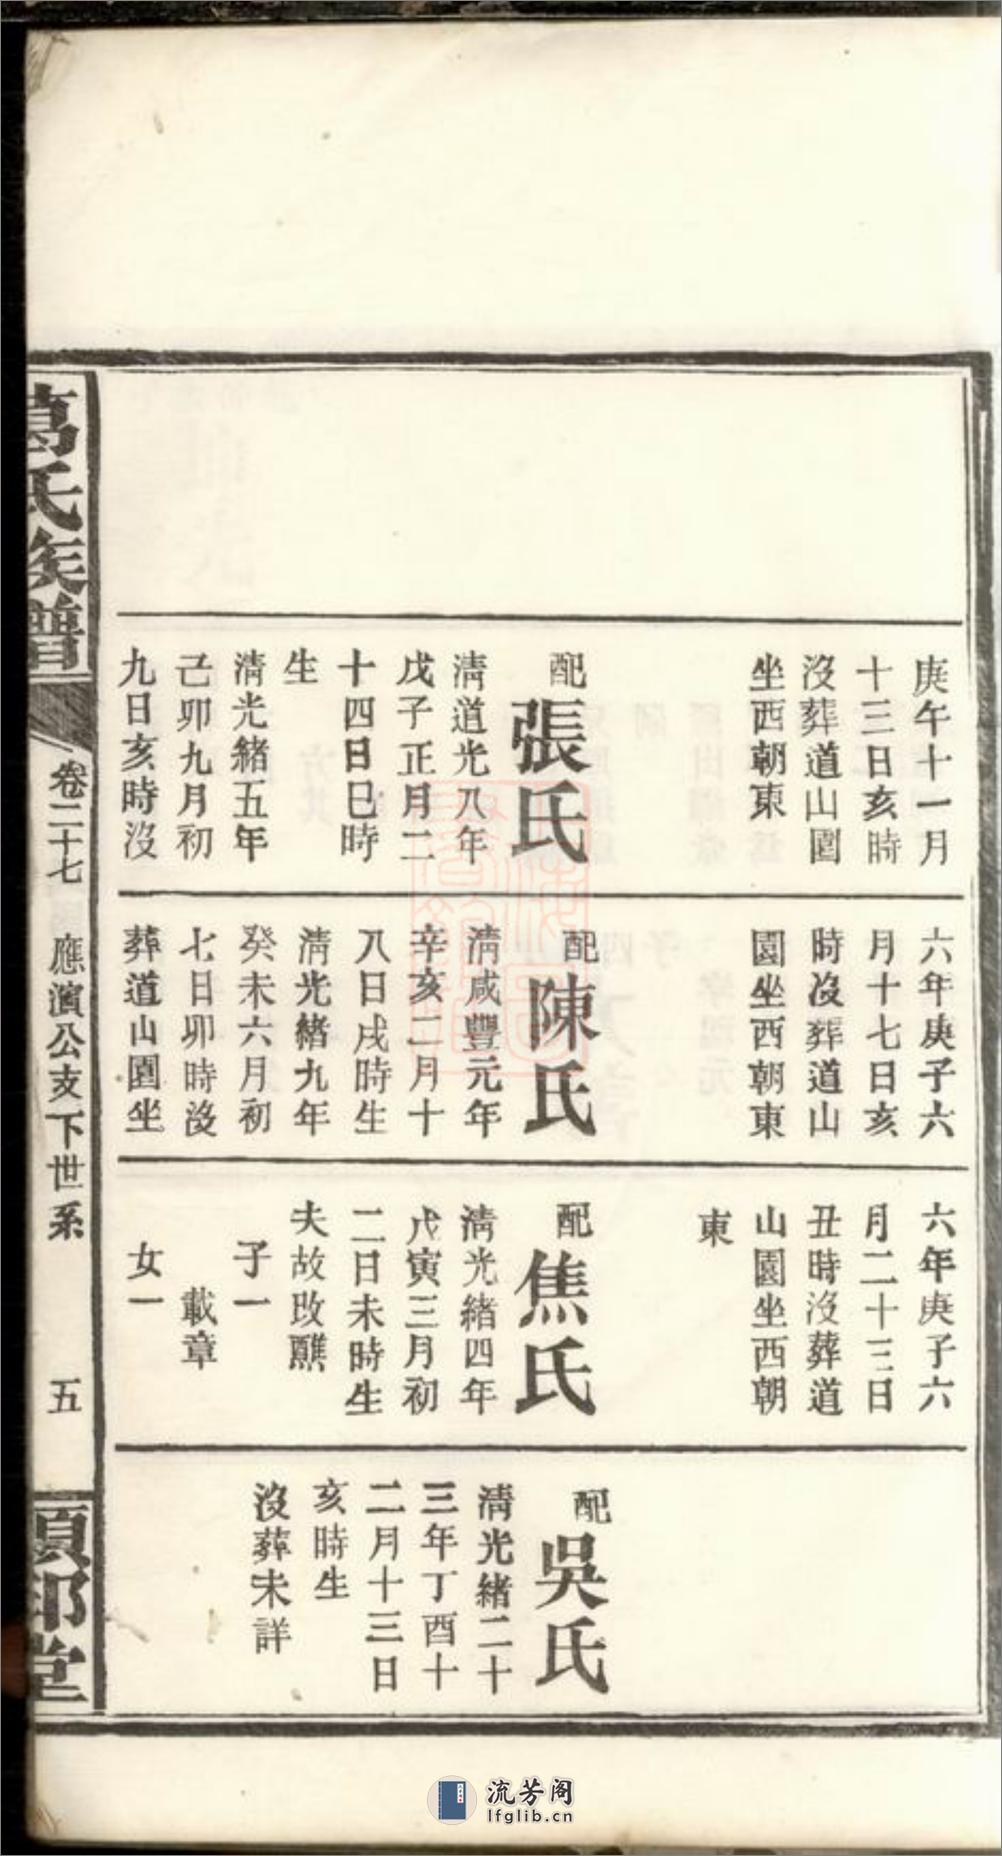 庚午十一月
十三日亥時
沒葬道山園
坐西朝東
配
張氏
清道光八年
戊子正月二
十四日巳時
生
清光緒五年
己卯九月初
九日亥時沒
六年庚子六
月十七日亥
時沒葬道山
園坐西朝東
配
陳氏
清咸豐元年
辛亥二月十
八日戌時生
清光緒九年
癸未六月初
七日卯時沒
葬道山園坐
六年庚子六
月二十三日
丑時沒葬道
山園坐西朝
東
配
焦氏
清光緒四年
戊寅三月初
二日未時生
夫故改醮
子一
載章
女一
配
吳氏
清光緒二十
三年丁酉十
二月十三日
亥時生
沒葬未詳
葛氏族譜
卷二十七
應濱公支下世系
五
頒印堂
流芳阁
lfglib.cn